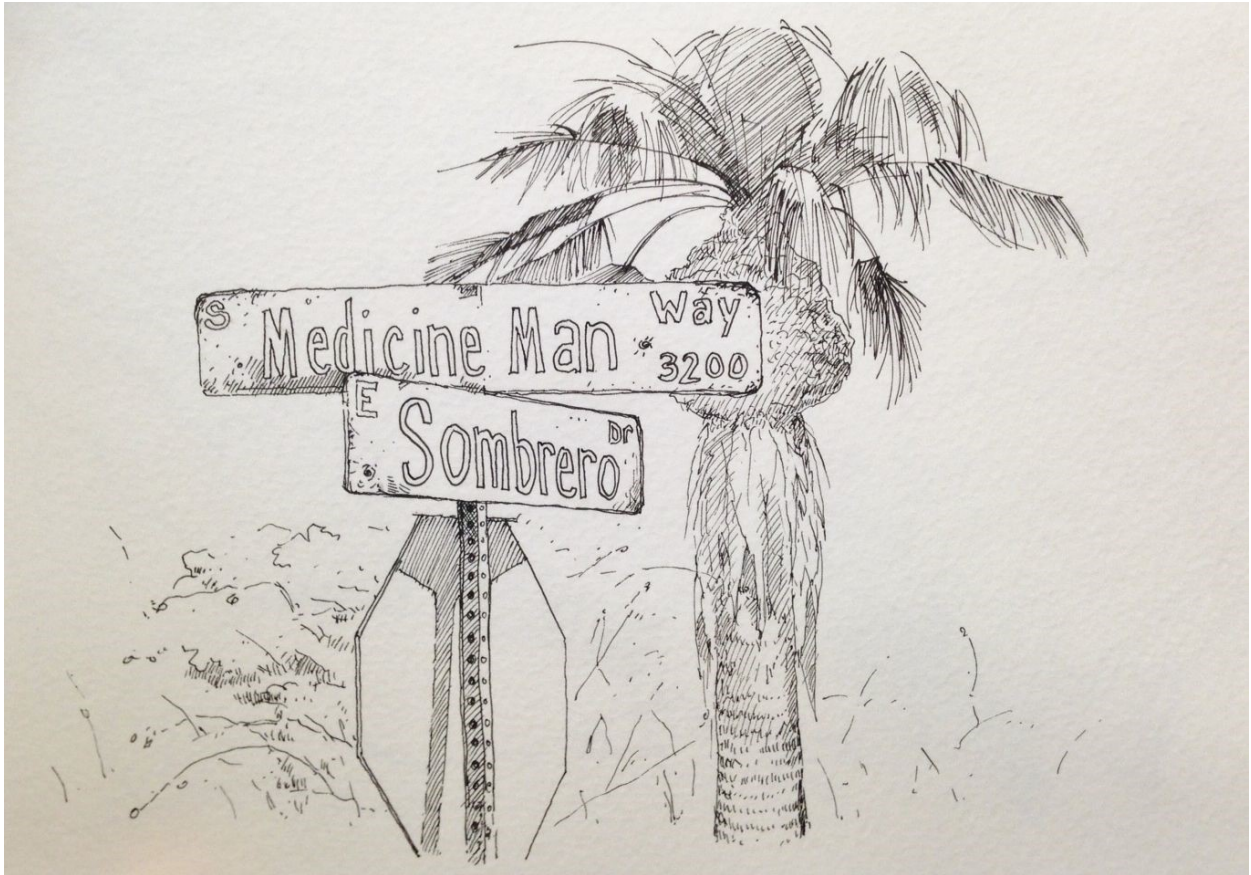 S Medicine Man Way
3200
E Sombrero Dr